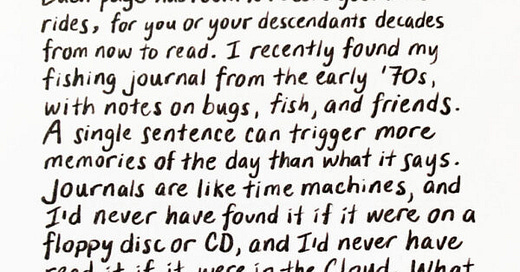 rides, for you or your descendants decades
from now to read. I recently found my
fishing journal from the early '70s,
with notes on bugs, fish, and friends.
A single sentence can trigger more
memories of the day than what it says.
Journals are like time machines, and
I'd never have found it if it were on a
floppy disc or CD, and I'd never have
read it if it were in the Cloud. What